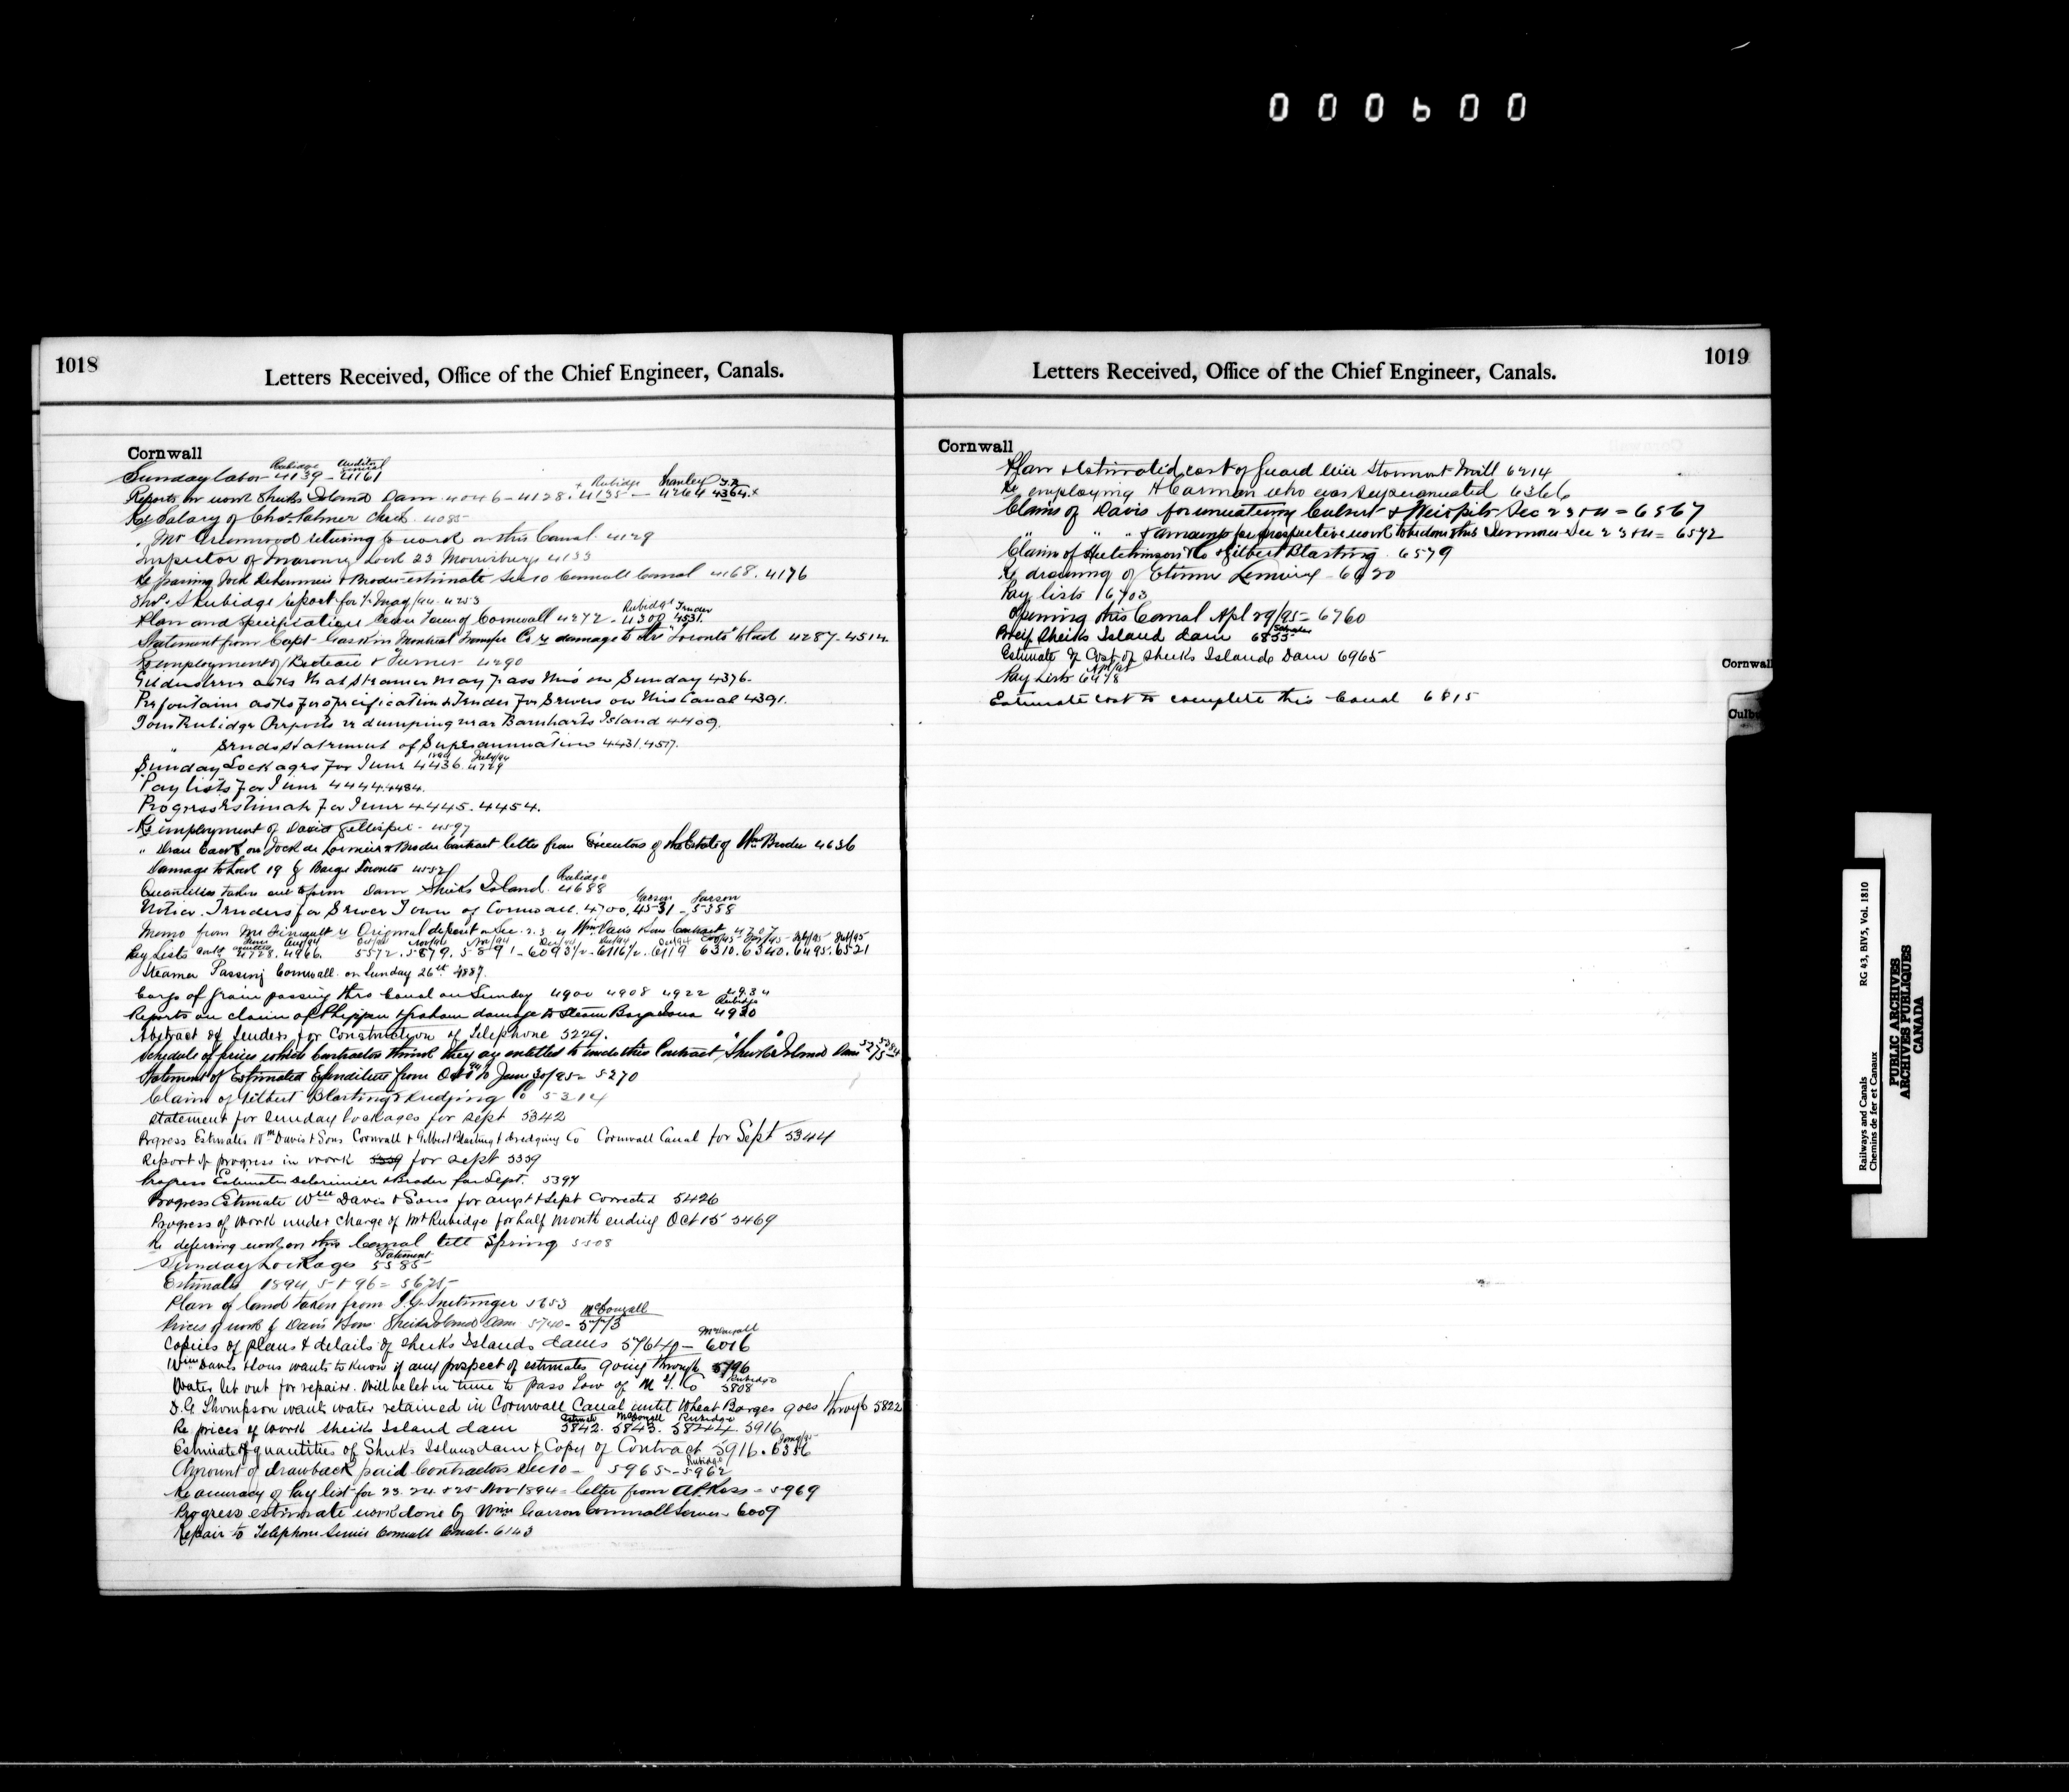 000600
1018
Letters Received, Office of the Chief Engineer, Canals.
Cornwall
Rubidge Auditor General
Sunday labor 4139 - 4161
+ Rubidge Stanley
Reports on work Sheiks Island Dam 4046 - 4128. 4135 - 4264 4364.x
Re Salary of Chas. Palmer Clerk 4085
" Mr Greenwood returning to work on this Canal 4129
Inspector of Masonry Lock 23 Morrisburg 4133
Re paving Jock Delormier & Broder estimate Sec 10 Cornwall Canal 4168. 4176
Thos. S Rubidge report for ½ May/94. 4253
Rubidge Tender
Plan and Specification Sewer Town of Cornwall 4272 - 4300 4531.
Statement from Capt Gaskin Montreal Transfer Co re damage to Str "Toronto" Lock 4287-4514.
Re employment of Bruteau & Turner 4290
Gildersleeve asks that Steamer may pass this on Sunday 4376.
Prefontaine asks for specification & Tender for Sewers on this Canal 4391.
Tom Rubidge Reports re dumping near Barnharts Island 4409.
" Sends statement of Superannuation 4431. 4517.
July/94
Sunday Lockages for June 4436. 4729
Pay lists for June 4444.4484.
Progress Estimate for June 4445. 4454.
Re employment of David Gillespie - 4597
" Draw back on Jock de Lormier & Broder Contract letter from Executors of the Estate of Wm Broder 4636
Damage to Lock 19 by Barge Toronto 4552
Rubidge
Quantities taken out from Dam Sheiks Island. 4688
Garson Garson
Notice. Tenders for Sewer Town of Cornwall. 4700, 4531 - 5388
Memo from Mr re Original deposit on Sec. 2. 3. 4 Wm Davis & Sons Contract 4707
Aug/94 Nov/94 Feb/95
Pay Lists 4728. 4966. 5572. 5879. 5891 - 6093½ - 6116½. 6119 6310. 6340. 6495. 6521
Steamer Passing Cornwall on Sunday 26th 4887.
Cargo of grain passing thro Canal on Sunday 4900 4908 4922 4934
Rubidge
Reports on claim of Phippen & Graham damage to Steam Barge 4930
Abstract of Tenders for Construction of Telephone 5229.
Schedule of prices which Contractors think they are entitled to under this Contract "Sheiks Island Dam" 5275
Statement of Estimated Expenditure from Oct 1/94 to June 30/95 = 5270
Claim of Gilbert Blasting & Dredging Co 5314
Statement for Sunday Lockages for Sept 5342
Progress Estimates Wm Davis & Sons Cornwall & Gilbert Blasting & dredging Co Cornwall Canal for Sept 5344
Report of progress in work 5339 for Sept 5339
Progress Estimates Delorimier & Broder for Sept. 5397
Progress Estimate Wm Davis & Sons for augt & Sept Corrected 5426
Progress of Work under charge of Mr Rubidge for half month ending Oct 15 5469
Re deferring work on this Canal till Spring 5508
Statement
Sunday Lockages 5585
Estimate 1894, 5 & 96 = 5625
Plan of land taken from J.G. Snetsinger 5653
McDougall
Prices of work by Davis & Sons Sheiks Island Dam 5740 - 5773
McDougall
Copies of plans & details of Sheiks Islands dams 5764½ - 6016
Wm Davis & Sons wants to know if any prospect of estimates going through 5796
Rubidge
Water let out for repairs. Will be let in time to pass Tow of M. T. Co 5808
D.G. Thompson wants water retained in Cornwall Canal until Wheat Barges goes through 5822
Estimate McDougall Rubidge
Re prices of work Sheiks Island dam 5842. 5843. 5844. 5916
Estimate of quantities of Sheiks Island dam & Copy of Contract 5916. 6356
Rubidge
Amount of drawback paid Contractors Sec 10 - 5965 - 5962
Re accuracy of Pay list for 23. 24 & 25 Nov 1894 = letter from A.P. Ross = 5969
Progress estimate work done by Wm Garson Cornwall Sewer - 6009
Repair to Telephone Service Cornwall Canal - 6143
1019
Letters Received, Office of the Chief Engineer, Canals.
Cornwall
Plan & Estimated cost of Guard Weir Stormont Mill 6214
Re employing H Carman who was superannuated 6366
Claims of Davis for unwatering Culvert & Weir pits Sec 2 3 & 4 = 6567
" " " & amounts for prospective work to be done this Summer Sec 2 3 & 4 = 6572
Claim of Hutchinson & Co & Gilbert Blasting 6579
Re drowning of Etienne Lemieux - 6620
Pay lists 6703
Opening this Canal Apl 29/95 = 6760
Breif Sheiks Island dam 6855
Estimate of Cost of Sheiks Islands Dam 6965
Pay Lists 6478
Estimate cost to complete this Canal 6815
Cornwall
Culbu
Railways and Canals RG 43, BIV5, Vol. 1810
Chemins de fer et Canaux
PUBLIC ARCHIVES
ARCHIVES PUBLIQUES
CANADA